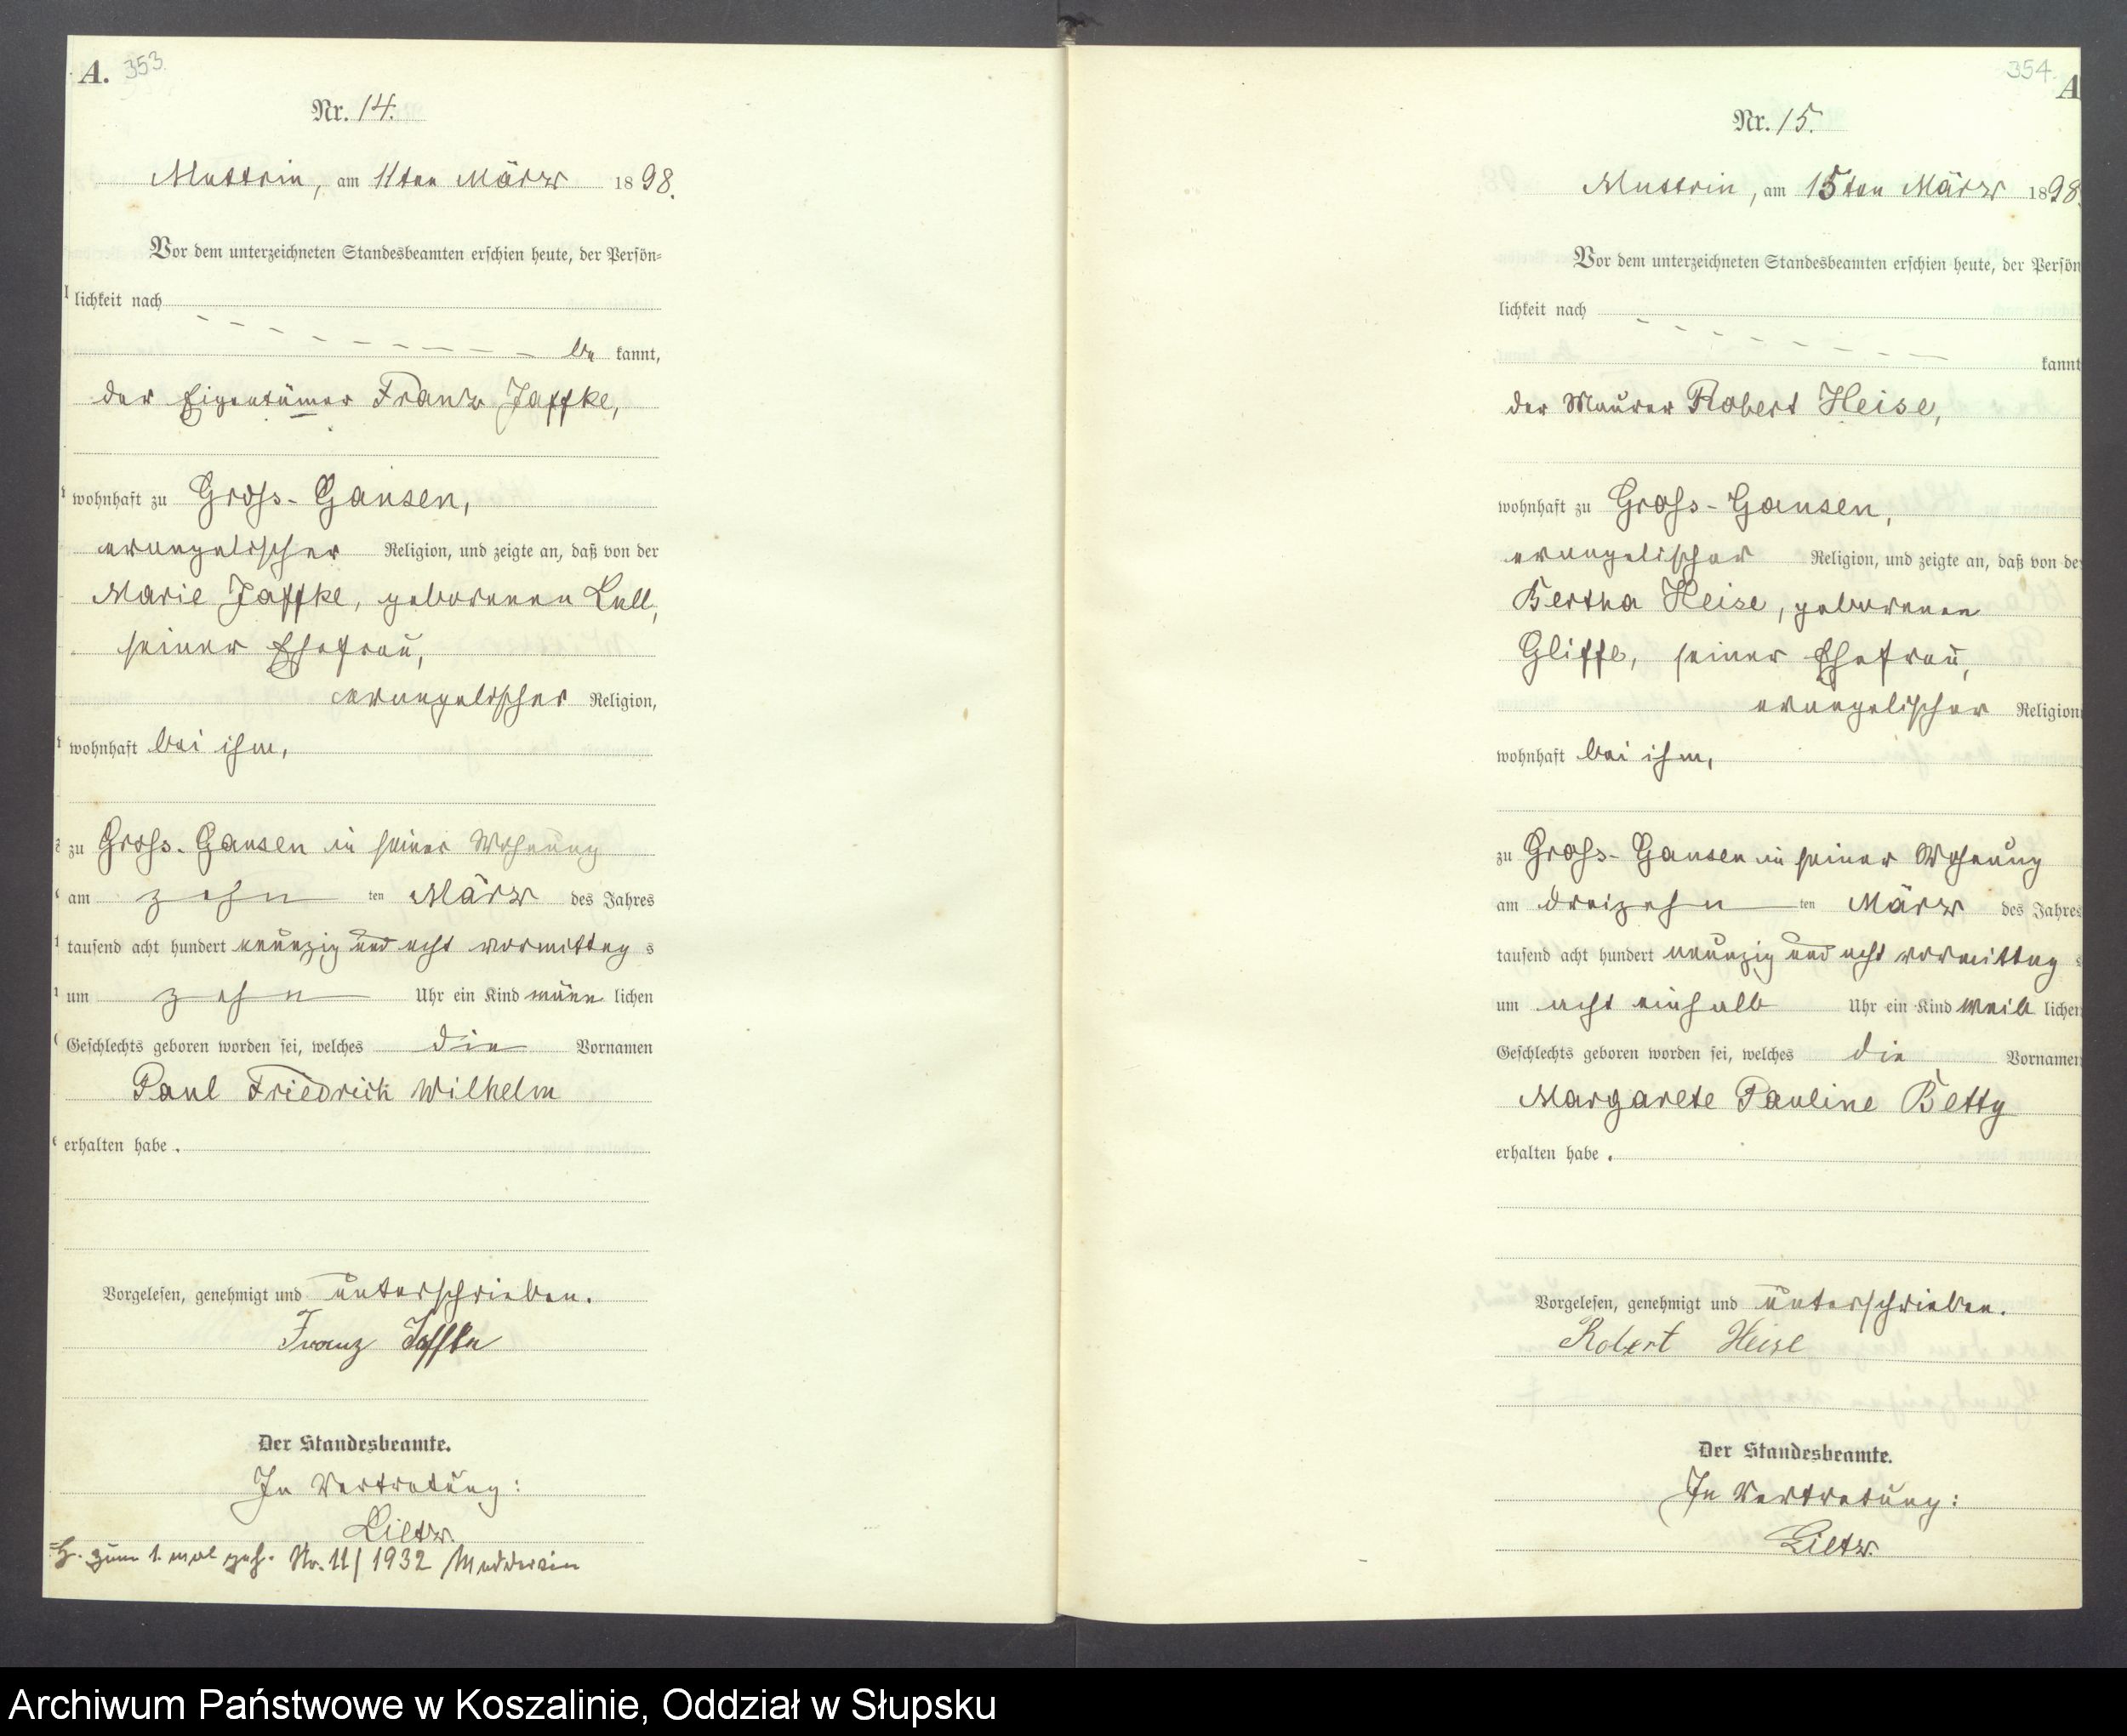 A. 353.
Nr. 14.
Muttrin, am 11ten März 1898.
Vor dem unterzeichneten Standesbeamten erschien heute, der Persön-
lichkeit nach
be kannt,
der Eigentümer Franz Jaffke,
wohnhaft zu Gross-Gansen,
evangelischer Religion, und zeigte an, daß von der
Marie Jaffke, geborenen Lull,
seiner Ehefrau,
evangelischer Religion,
wohnhaft bei ihm,
zu Gross-Gansen in seiner Wohnung
am zehn ten März des Jahres
tausend acht hundert neunzig und acht vormittag s
um zehn Uhr ein Kind männ lichen
Geschlechts geboren worden sei, welches die Vornamen
Paul Friedrich Wilhelm
erhalten habe.
Vorgelesen, genehmigt und unterschrieben.
Franz Jaffke
Der Standesbeamte.
In Vertretung:
Lietz.
zum 1. mal geh. Nr. 11/1932 Mudderin
354. A
Nr. 15.
Muttrin, am 15ten März 1898.
Vor dem unterzeichneten Standesbeamten erschien heute, der Persön
lichkeit nach
kannt
der Maurer Robert Heise,
wohnhaft zu Gross-Gansen,
evangelischer Religion, und zeigte an, daß von de
Bertha Heise, geborenen
Gliffe, seiner Ehefrau,
evangelischer Religion
wohnhaft bei ihm,
zu Gross-Gansen in seiner Wohnung
am dreizehn ten März des Jahres
tausend acht hundert neunzig und acht vormittag s
um acht einhalb Uhr ein Kind weib lichen
Geschlechts geboren worden sei, welches die Vornamen
Margarete Pauline Betty
erhalten habe.
Vorgelesen, genehmigt und unterschrieben.
Robert Heise
Der Standesbeamte.
In Vertretung:
Lietz.
Archiwum Państwowe w Koszalinie, Oddział w Słupsku